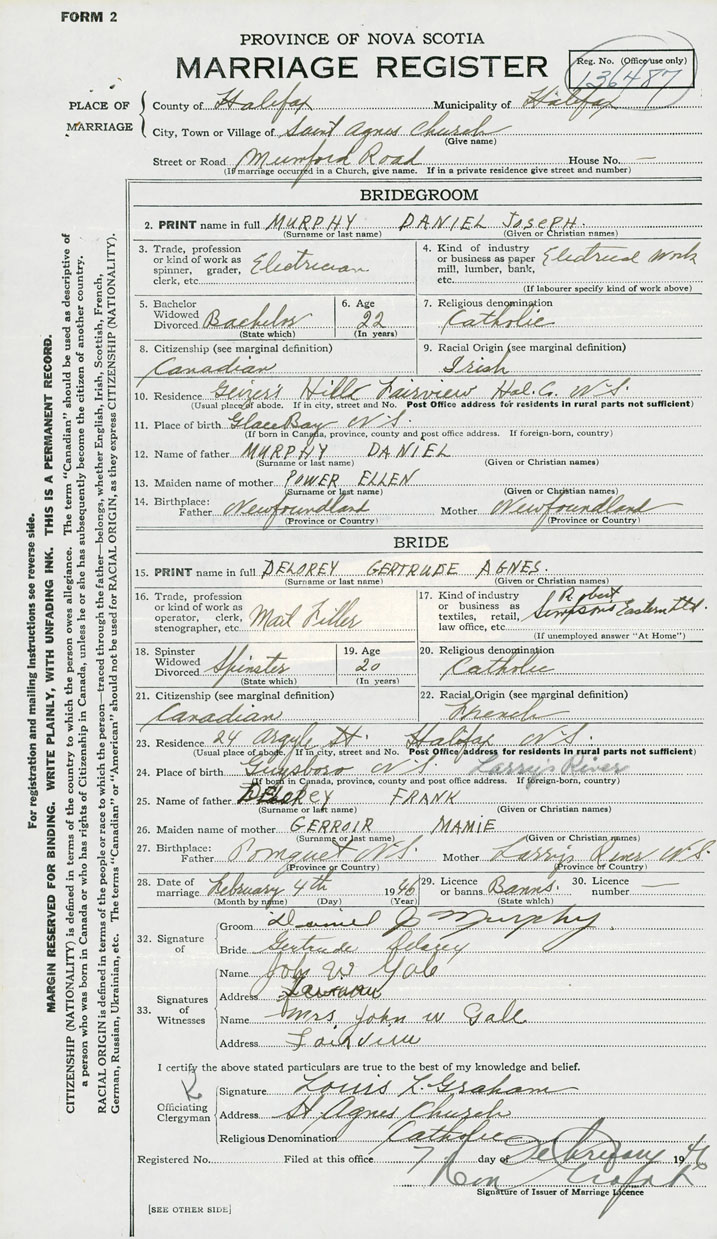 FORM 2
PROVINCE OF NOVA SCOTIA
MARRIAGE REGISTER
Reg. No. (Office use only)
136487
PLACE OF MARRIAGE
County of Halifax Municipality of Halifax
City, Town or Village of Saint Agnes Church
(Give name)
Street or Road Mumford Road House No. —
(If marriage occurred in a Church, give name. If in a private residence give street and number)
BRIDEGROOM
2. PRINT name in full MURPHY DANIEL JOSEPH.
(Surname or last name) (Given or Christian names)
3. Trade, profession or kind of work as spinner, grader, clerk, etc. Electrician
4. Kind of industry or business as paper mill, lumber, bank, etc. Electrical Work
(If labourer specify kind of work above)
5. Bachelor Widowed Divorced Bachelor
(State which)
6. Age 22
(In years)
7. Religious denomination
Catholic
8. Citizenship (see marginal definition)
Canadian
9. Racial Origin (see marginal definition)
Irish
10. Residence Geizer's Hill Fairview Hal. Co. N.S.
(Usual place of abode. If in city, street and No. Post Office address for residents in rural parts not sufficient)
11. Place of birth Glace Bay N.S.
(If born in Canada, province, county and post office address. If foreign-born, country)
12. Name of father MURPHY DANIEL
(Surname or last name) (Given or Christian names)
13. Maiden name of mother POWER ELLEN
(Surname or last name) (Given or Christian names)
14. Birthplace: Father Newfoundland Mother Newfoundland
(Province or Country) (Province or Country)
BRIDE
15. PRINT name in full DELOREY GERTRUDE AGNES.
(Surname or last name) (Given or Christian names)
16. Trade, profession or kind of work as operator, clerk, stenographer, etc. Mail Filler
17. Kind of industry or business as textiles, retail, law office, etc. Robert Simpsons Eastern Ltd.
(If unemployed answer "At Home")
18. Spinster Widowed Divorced Spinster
(State which)
19. Age 20
(In years)
20. Religious denomination
Catholic
21. Citizenship (see marginal definition)
Canadian
22. Racial Origin (see marginal definition)
French
23. Residence 24 Argyle St. Halifax N.S.
(Usual place of abode. If in city, street and No. Post Office address for residents in rural parts not sufficient)
24. Place of birth Guysboro N.S. Larry's River
(If born in Canada, province, county and post office address. If foreign-born, country)
25. Name of father DELOREY FRANK
(Surname or last name) (Given or Christian names)
26. Maiden name of mother GERROIR MAMIE
(Surname or last name) (Given or Christian names)
27. Birthplace: Father Pomquet N.S. Mother Larry's River N.S.
(Province or Country) (Province or Country)
28. Date of marriage February 4th 1946
(Month by name) (Day) (Year)
29. Licence or banns Banns.
(State which)
30. Licence number —
32. Signature of
Groom Daniel J Murphy
Bride Gertrude Delorey
33. Signatures of Witnesses
Name John W Gale
Address Fairview
Name Mrs John W Gale
Address Fairview
I certify the above stated particulars are true to the best of my knowledge and belief.
Officiating Clergyman
Signature Louis L. Graham
Address St Agnes Church
Religious Denomination Catholic
Registered No. Filed at this office 7 day of February 1946
Signature of Issuer of Marriage Licence
[SEE OTHER SIDE]
For registration and mailing instructions see reverse side.
MARGIN RESERVED FOR BINDING. WRITE PLAINLY, WITH UNFADING INK. THIS IS A PERMANENT RECORD.
CITIZENSHIP (NATIONALITY) is defined in terms of the country to which the person owes allegiance. The term "Canadian" should be used as descriptive of
a person who was born in Canada or who has rights of Citizenship in Canada, unless he or she has subsequently become the citizen of another country.
RACIAL ORIGIN is defined in terms of the people or race to which the person—traced through the father—belongs, whether English, Irish, Scottish, French,
German, Russian, Ukrainian, etc. The terms "Canadian" or "American" should not be used for RACIAL ORIGIN, as they express CITIZENSHIP (NATIONALITY).